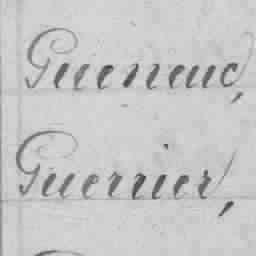 Gueneuc,
Guerrier,